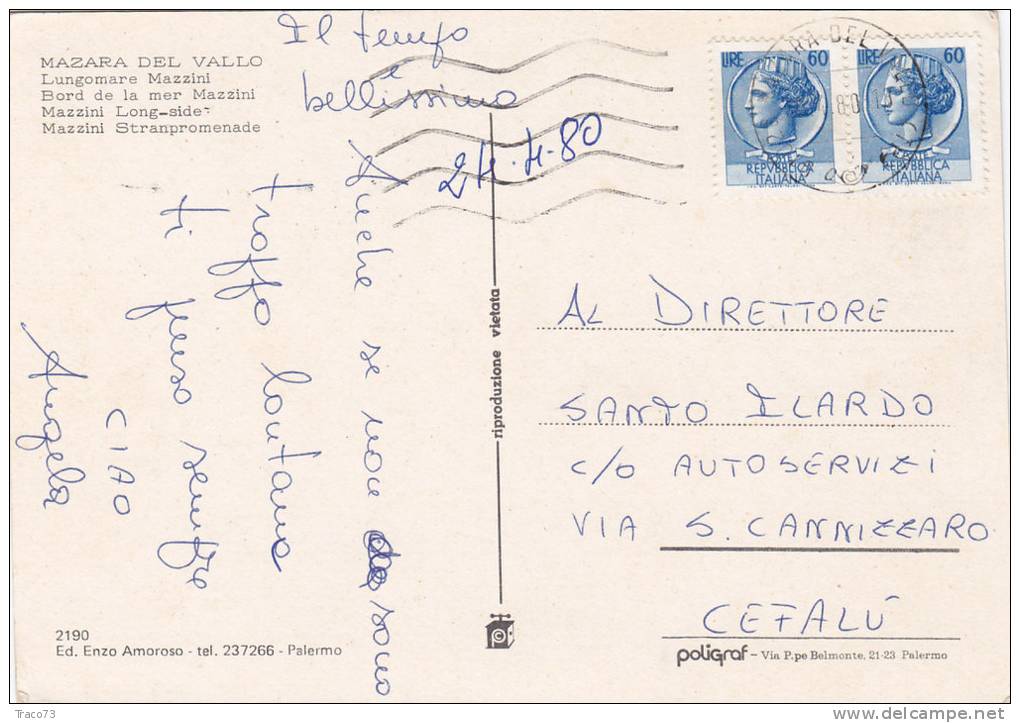 MAZARA DEL VALLO
Lungomare Mazzini
Bord de la mer Mazzini
Mazzini Long-side
Mazzini Stranpromenade
Il tempo
è
bellissimo
24.4.80
Anche se non sono
troppo lontana
ti penso sempre
CIAO
Angela
LIRE 60
POSTE
REPVBBLICA
ITALIANA
LIRE 60
POSTE
REPVBBLICA
ITALIANA
RA DEL
riproduzione vietata
AL DIRETTORE
SANTO ILARDO
C/O AUTOSERVIZI
VIA S. CANNIZZARO
CEFALÙ
2190
Ed. Enzo Amoroso - tel. 237266 - Palermo
poligraf - Via P.pe Belmonte, 21-23 Palermo
Traco73
www.delcampe.net